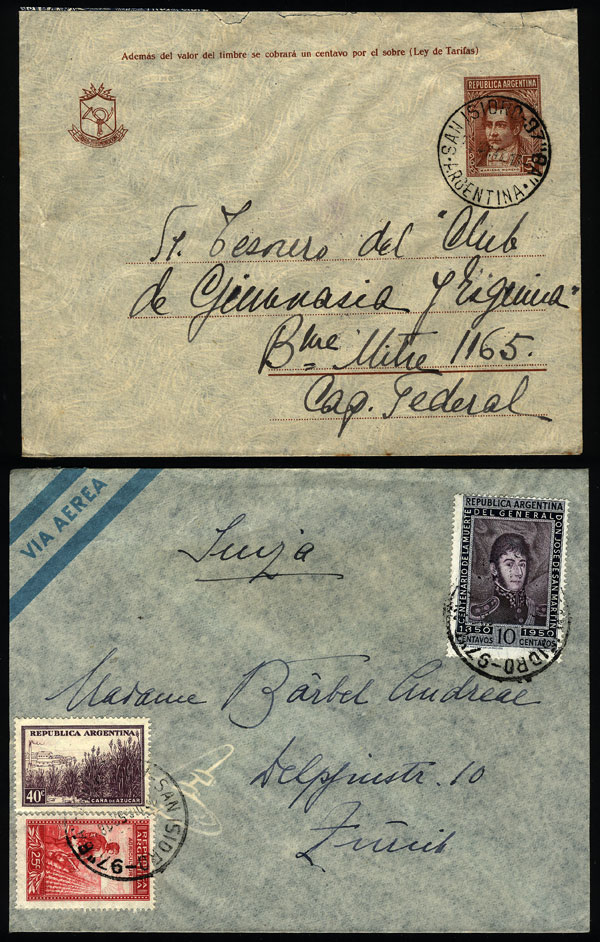 Además del valor del timbre se cobrará un centavo por el sobre (Ley de Tarifas)
REPUBLICA ARGENTINA
5
MARIANO MORENO
SAN ISIDRO-97
ARGENTINA
Sr. Tesorero del "Club
de Gimnasia y Esgrima"
Bme Mitre 1165.
Cap. Federal
VIA AEREA
Suiza
REPUBLICA ARGENTINA
CENTENARIO DE LA MUERTE
DEL GENERAL
DON JOSE DE SAN MARTIN
1850 1950
10
CENTAVOS CENTAVOS
ISIDRO-97
Madame Bärbel Andreae
Delphinstr. 10
Zürich
REPUBLICA ARGENTINA
40c
CAÑA DE AZUCAR
SAN ISIDR
-97
25c
AGRICULTURA
REPUBLICA
ARGENTINA